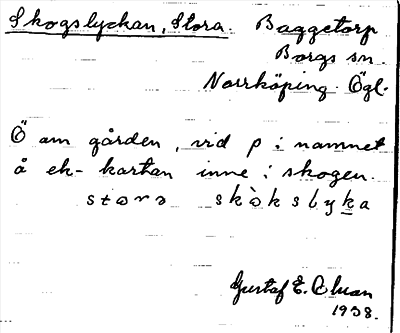 Skogslyckan, Stora. Baggetorp
Borgs sn.
Norrköping Ögl.
Ö om gården, vid p i namnet
å ek-kartan inne i skogen.
stora skòkslyka
Gustaf E. Olsson
1938.